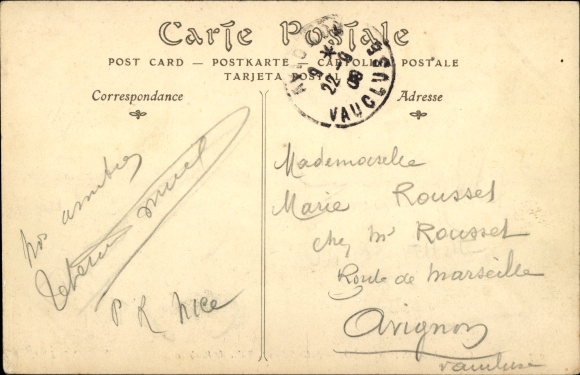 Carte Postale
POST CARD — POSTKARTE — CARTOLINA POSTALE
TARJETA POSTAL
Correspondance
Adresse
22-9
08
VAUCLUSE
Mademoiselle
Marie Rousset
chez Mr Rousset
Route de Marseille
Avignon
Vaucluse
P R Nice